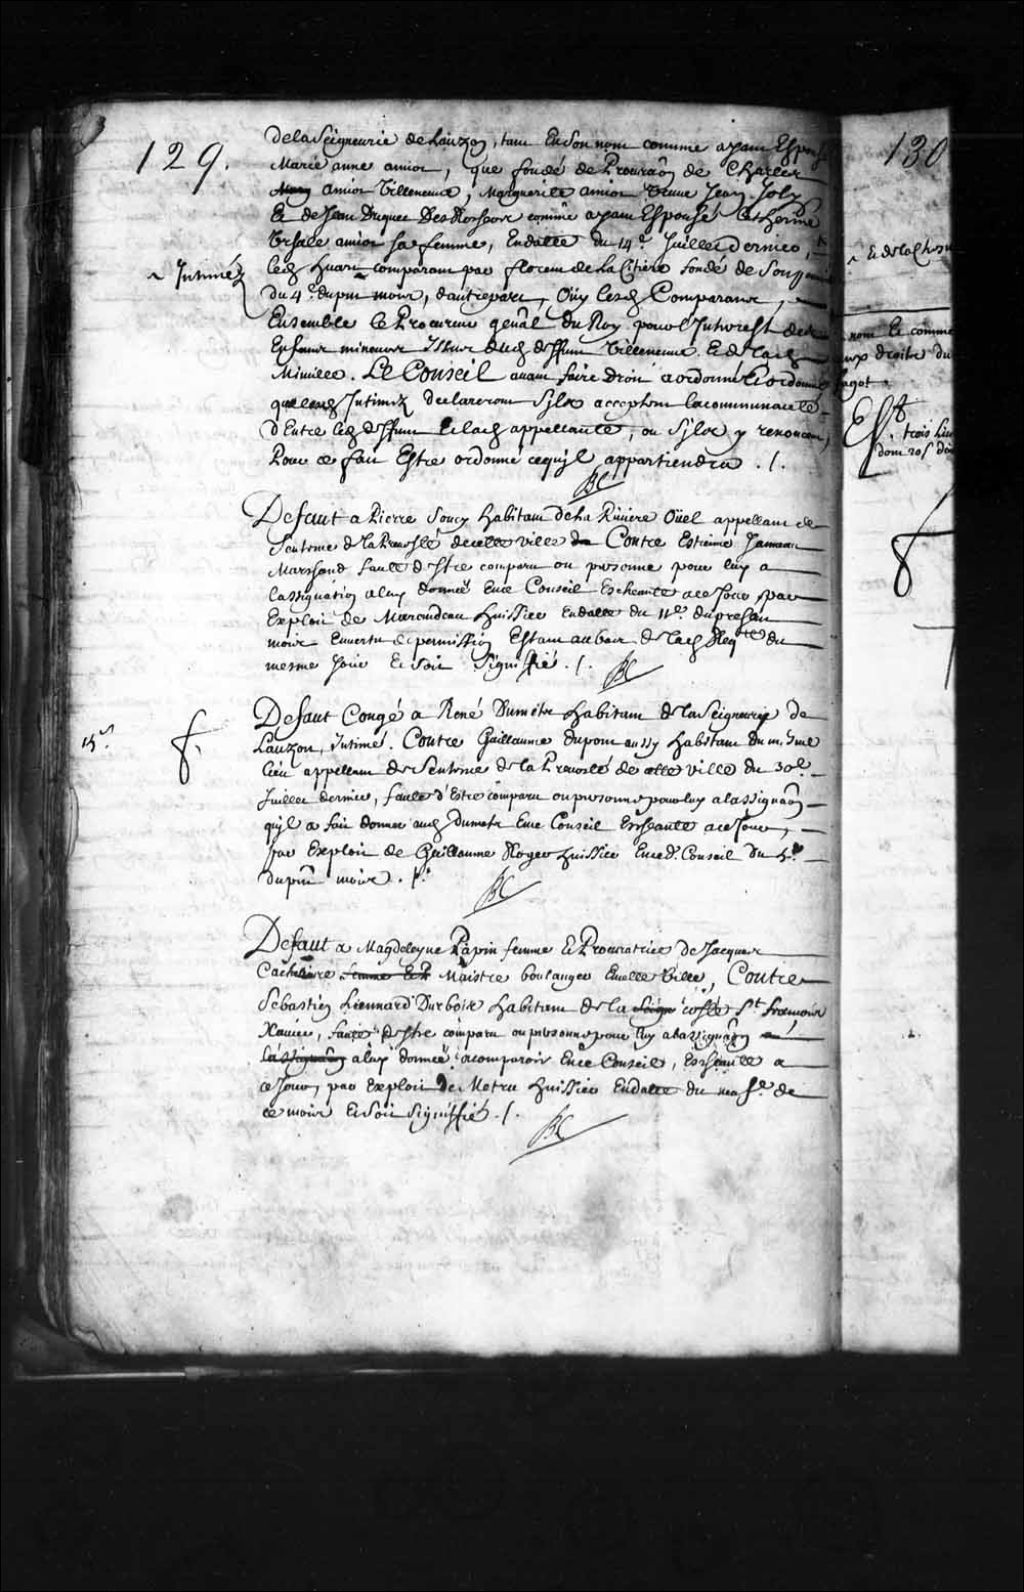 129.
de la Seigneurie de Lauzon, tant En Son nom comme ayant Espousé
Marie anne amiot, que fondé de Procuraôn de Charles
amiot Villeneuve, Marguerite amiot Veuve Jean Joly
Et de Jean Duquet Des Rossers comme ayant Espousé Catherine
Ursule amiot sa femme, En datte du 14e Juillet dernier,
~ Intiméz
led. huart comparant par florent de la Citiere fondé de Son
du 4e du pnt mois, d'autre part, Oüy lesd. Comparans,
Ensemble Le Procureur genâl du Roy pour l'Interest des
Enfans mineurs Issus dud. deffunt Villeneuve Et de lad.
Miville. Le Conseil avant faire droit a ordonné Et ordonne
que lesd. Intiméz declareront S'ylz acceptent la communauté
d'Entre led. deffunt Et lad. appellante, ou S'ylz y renoncent,
Pour ce fait Estre ordonné ce qu'yl appartiendra ./.
Defaut a Pierre Soucy habitant de la Riviere Oüel appellant de
Sentence de la Prevosté de cette ville Contre Estienne
Marchand faute d'Estre comparu ou personne pour luy a
l'assignation a luy donnée En ce Conseil Escheante a ce Jour par
Exploit de Marandeau huissier En datte du 11e du present
mois En vertu de permission Estant au bas de lad. Reqte du
mesme Jour Et soit Signiffié ./.
Defaut Congé a René Dumets habitant de la Seigneurie de
Lauzon, Intimé. Contre Guillaume dupont aussy habitant du mesme
lieu appellant de Sentence de la Prevosté de cette ville du 30e
Juillet dernier, faute d'Estre comparu ou personne pour luy a l'assignaôn
qu'yl a fait donner aud. Dumets En ce Conseil Escheante a ce Jour,
par Exploit de Guillaume Roger huissier En ced. Conseil du 4e
du pnt mois ./.
Defaut a Magdeleyne Papin femme Et Procuratrice de Jacques
femme Et P Maistre boulanger En cette Ville, Contre
Sebastien Liennard Durbois habitant de la Seign costé St francois
Xavier, faute d'Estre comparu ou personne pour luy a l'assignaôn
l'assignaôn a luy donnée a comparoir En ce Conseil, Escheante a
ce Jour, par Exploit de Metru huissier En datte du neufe de
ce mois Et soit Signiffié ./.
130
~ Et de la
nom Et comme
aux droits du
trois